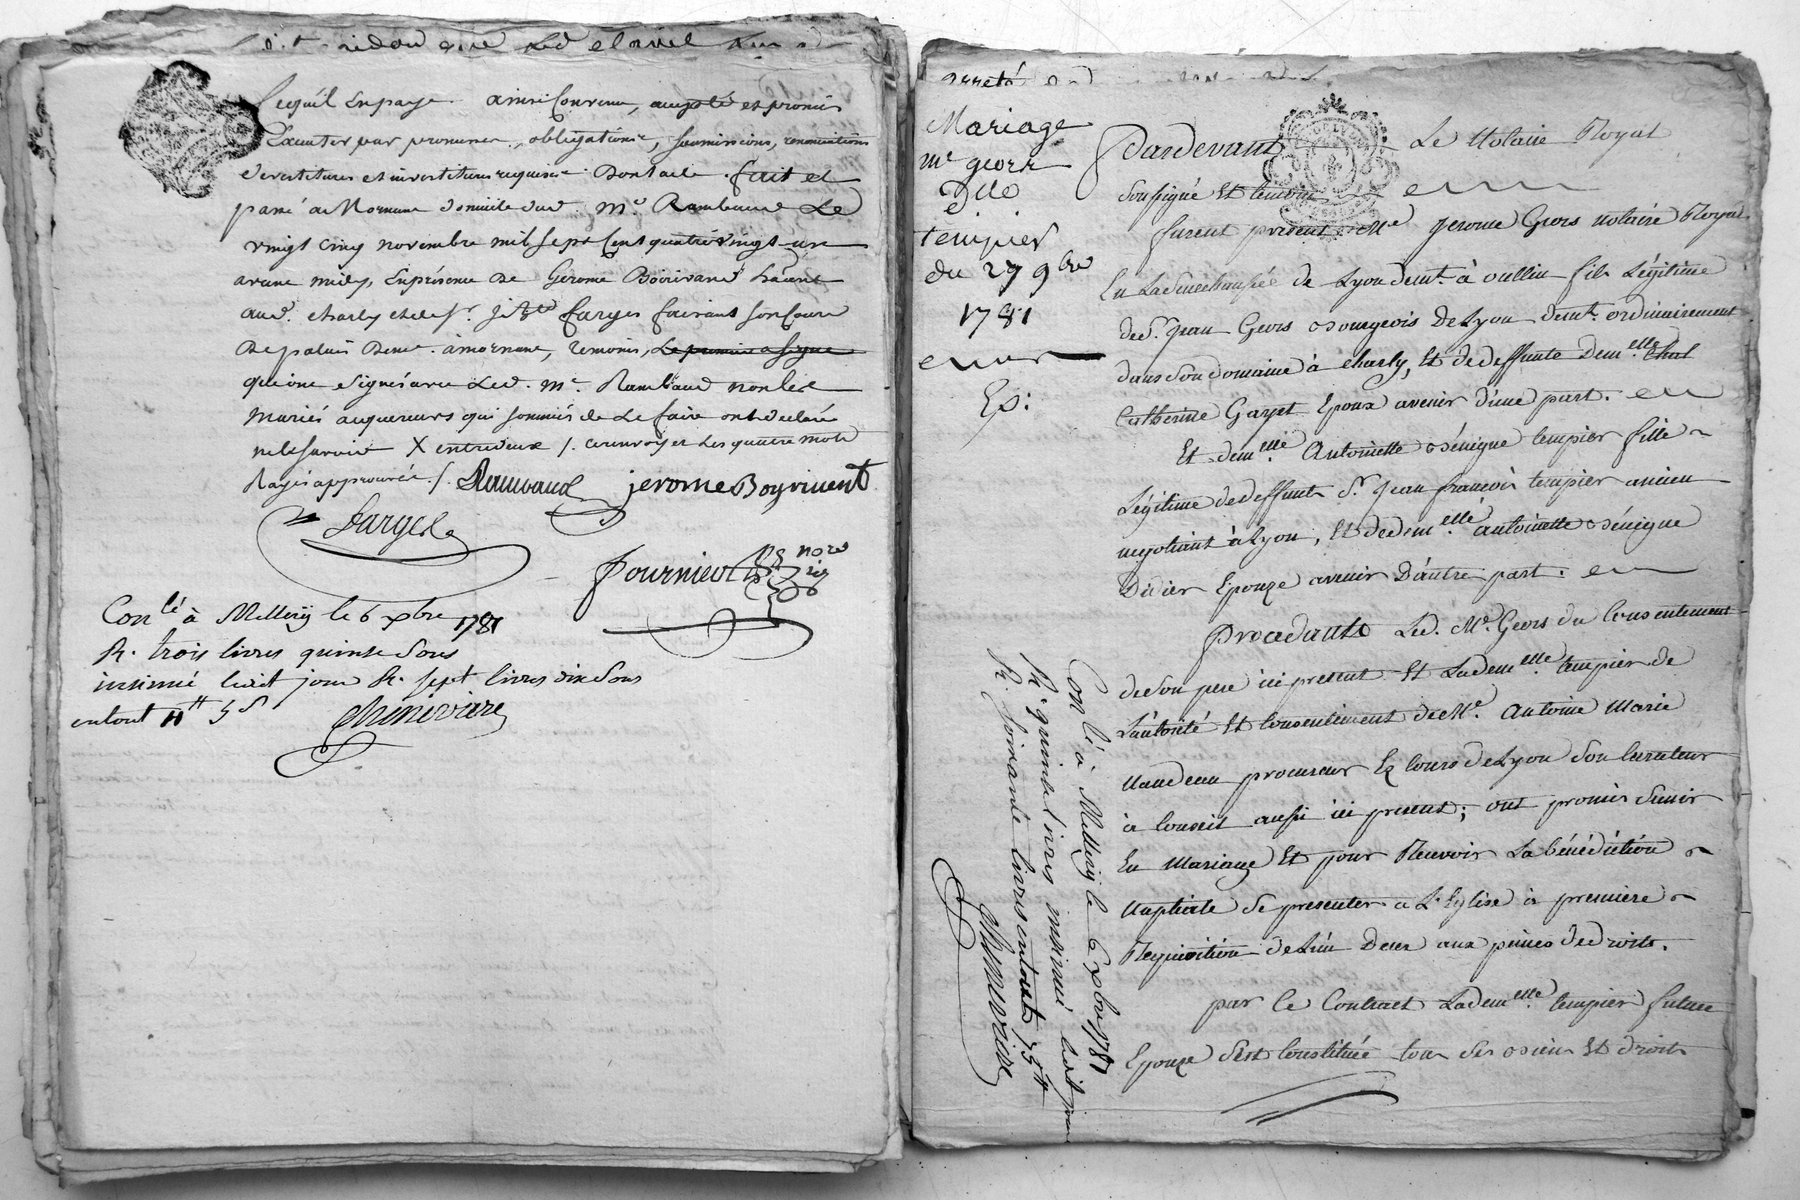 Lequel En paye ainsi Convenu, accepté et promis
Executer par promesses, obligations, soumissions, renonciations
devestitures et investitures requises. Dont acte. fait et
passé à Mornant domicile dud. Me. Rambaud Le
vingt cinq novembre mil sept Cent quatre vingt un
avant midy, En présence de Gerome Boirivant
aud. charly et de sr. farges faisant son Cours
De palais Demt. à mornant, temoins, Le premier a signé
qui ont signé avec Led. Me. Rambaud non les
mariés acquereurs qui sommés de Le faire ont declaré
ne le savoir X entredeux /. et renvoyer Les quatre mots
Rayés approuvés /. Rambaud jerome Boyrivent
farges
fournier nore
Conlé à Millery le 6 xbre 1781
R. trois livres quinze Sous
insinué ledit jour R. sept livres dix Sous
en tout 11tt 5s
Chinivière
Mariage
me geors
Dlle
tempier
du 27 9bre
1781
Ex:
Conlé à Millery le 6 xbre 1781
R. quinze livres insinué ledit jour
R. soixante livres en tout 75tt
Chinivière
Pardevant Le Notaire Royal
Soussigné Et temoins
furent présents Me jerome Geors notaire Royal
En La Senechaussée de Lyon demt. à oullin fils Légitime
de Sr. jean Geors Bourgeois de Lyon demt. ordinairement
dans Son domaine à charly, Et de deffunte demelle
Catherine Gayet Epoux avenir d'une part.
Et demelle Antoinette Bénigne tempier fille
Légitime de deffunt Sr. jean françois tempier ancien
negotiant à Lyon, Et de demelle antoinette Bénigne
Didier Epouze avenir D'autre part.
Procedants Led. Me. Geors du Consentement
de Son pere ici present Et Lademelle tempier de
L'autorité Et Consentement de Me. Antoine Marie
Naudeau procureur Ez Cours de Lyon Son Curateur
à Conseil aussi ici present; ont promis S'unir
En Mariage Et pour Recevoir La bénédiction
Nuptiale Se presenter à L'Eglise à premiere
Requisition de L'un Deux aux peines de droits.
par Ce Contract Lademelle tempier future
Epouze S'est Constituée tous Ses Biens Et droits